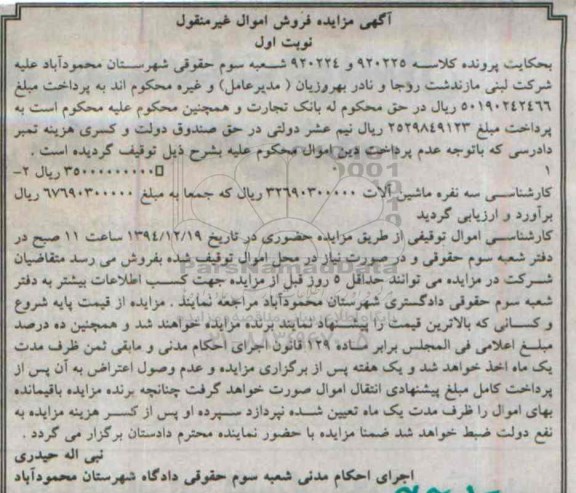 آگهی مزایده فروش اموال غیرمنقول
نوبت اول
بحکایت پرونده کلاسه ۹۲۰۲۲۵ و ۹۲۰۲۲۴ شعبه سوم حقوقی شهرستان محمودآباد علیه
شرکت لبنی مازندشت روجا و نادر بهروزیان ( مدیرعامل) و غیره محکوم اند به پرداخت مبلغ
۵۰۱۹۰۲۴۲۴۶۶ ریال در حق محکوم له بانک تجارت و همچنین محکوم علیه محکوم است به
پرداخت مبلغ ۲۵۲۹۸۴۹۱۲۳ ریال نیم عشر دولتی در حق صندوق دولت و کسری هزینه تمبر
دادرسی که باتوجه عدم پرداخت دین اموال محکوم علیه بشرح ذیل توقیف گردیده است .
۱ ۳۵۰۰۰۰۰۰۰۰۰ ریال ۲-
کارشناسی سه نفره ماشین آلات ۳۲۶۹۰۳۰۰۰۰۰ ریال که جمعا به مبلغ ۶۷۶۹۰۳۰۰۰۰۰ ریال
برآورد و ارزیابی گردید
کارشناسی اموال توقیفی از طریق مزایده حضوری در تاریخ ۱۳۹۴/۱۲/۱۹ ساعت ۱۱ صبح در
دفتر شعبه سوم حقوقی و در صورت نیاز در محل اموال توقیف شده بفروش می رسد متقاضیان
شرکت در مزایده می توانند حداقل ۵ روز قبل از مزایده جهت کسب اطلاعات بیشتر به دفتر
شعبه سوم حقوقی دادگستری شهرستان محمودآباد مراجعه نمایند . مزایده از قیمت پایه شروع
و کسانی که بالاترین قیمت را پیشنهاد نمایند برنده مزایده خواهند شد و همچنین ده درصد
مبلغ اعلامی فی المجلس برابر ماده ۱۲۹ قانون اجرای احکام مدنی و مابقی ثمن ظرف مدت
یک ماه اخذ خواهد شد و یک هفته پس از برگزاری مزایده و عدم وصول اعتراض به آن پس از
پرداخت کامل مبلغ پیشنهادی انتقال اموال صورت خواهد گرفت چنانچه برنده مزایده باقیمانده
بهای اموال را ظرف مدت یک ماه تعیین شده نپردازد سپرده او پس از کسر هزینه مزایده به
نفع دولت ضبط خواهد شد ضمنا مزایده با حضور نماینده محترم دادستان برگزار می گردد .
نبی اله حیدری
اجرای احکام مدنی شعبه سوم حقوقی دادگاه شهرستان محمودآباد
ParsNamadData